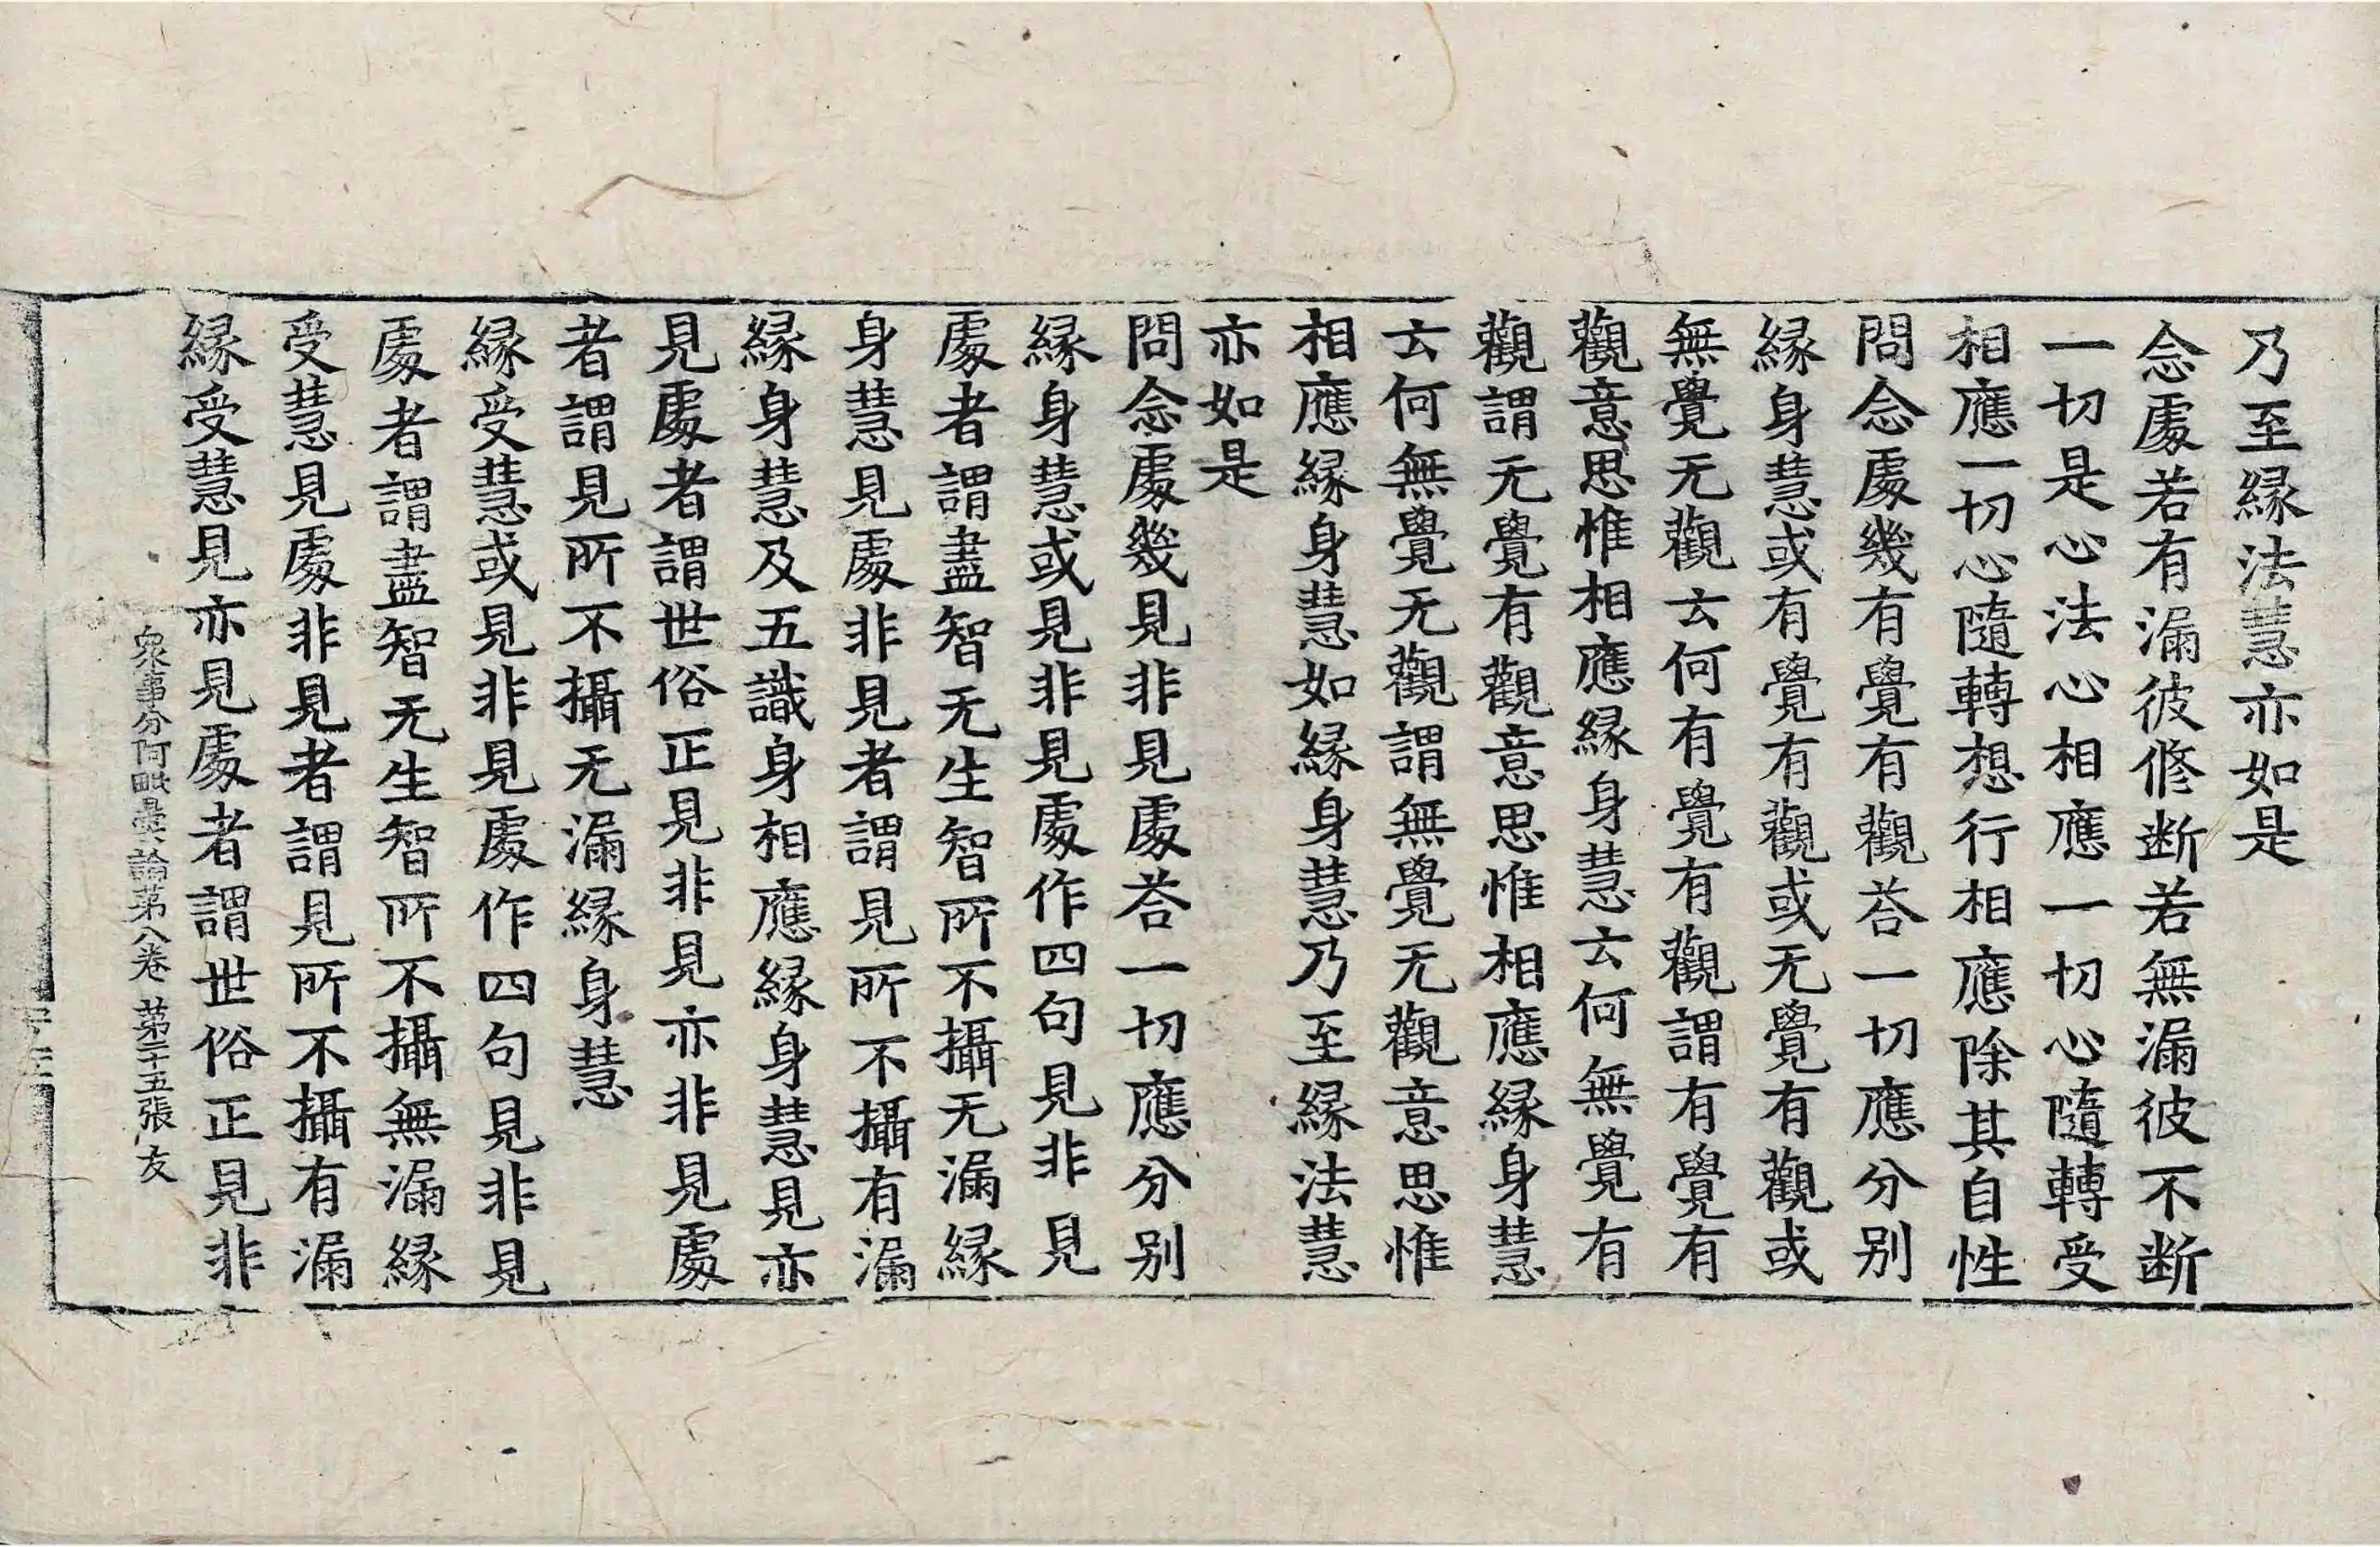 乃至縁法慧亦如是
念處若有漏彼修斷若無漏彼不斷
一切是心法心相應一切心隨轉受
相應一切心隨轉想行相應除其自性
問念處幾有覺有觀荅一切應分别
縁身慧或有覺有觀或无覺有觀或
無覺无觀云何有覺有觀謂有覺有
觀意思惟相應縁身慧云何無覺有
觀謂无覺有觀意思惟相應縁身慧
云何無覺无觀謂無覺无觀意思惟
相應縁身慧如縁身慧乃至縁法慧
亦如是
問念處幾見非見處荅一切應分别
縁身慧或見非見處作四句見非見
處者謂盡智无生智所不攝无漏縁
身慧見處非見者謂見所不攝有漏
縁身慧及五識身相應縁身慧見亦
見處者謂世俗正見非見亦非見處
者謂見所不攝无漏縁身慧
縁受慧或見非見處作四句見非見
處者謂盡智无生智所不攝無漏縁
受慧見處非見者謂見所不攝有漏
縁受慧見亦見處者謂世俗正見非
衆事分阿毗曇論苐八卷 苐二十五張 友